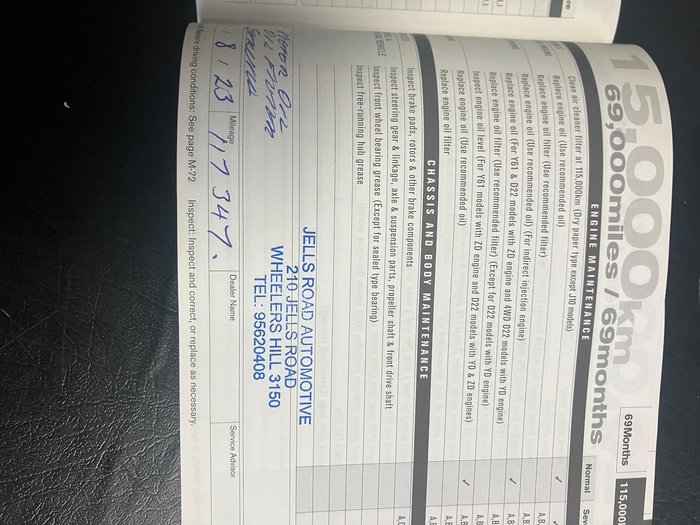 15,000km
69,000miles / 69months
69Months
115,000
ENGINE MAINTENANCE
Normal
Clean air cleaner filter at 115,000km (Dry paper type except J10 models)
Replace engine oil (Use recommended oil)
✓
Replace engine oil filter (Use recommended filter)
A,B
Replace engine oil (Use recommended oil) (For indirect injection engine)
A,B
Replace engine oil (For Y61 & D22 models with ZD engine and 4WD D22 models with YD engine)
✓
A,B
Replace engine oil filter (Use recommended filter) (Except for D22 models with YD engine)
A,B
Inspect engine oil level (For Y61 models with ZD engine and D22 models with YD & ZD engines)
A,B
Replace engine oil (Use recommended oil)
✓
A,B
Replace engine oil filter
CHASSIS AND BODY MAINTENANCE
Inspect brake pads, rotors & other brake components
Inspect steering gear & linkage, axle & suspension parts, propeller shaft & front drive shaft
Inspect front wheel bearing grease (Except for sealed type bearing)
Inspect free-running hub grease
VEHICLE
JELLS ROAD AUTOMOTIVE
210 JELLS ROAD
WHEELERS HILL 3150
TEL: 95620408
8, 23
Mileage
117347.
Dealer Name
Service Advisor
driving conditions: See page M-72
Inspect: Inspect and correct, or replace as necessary.